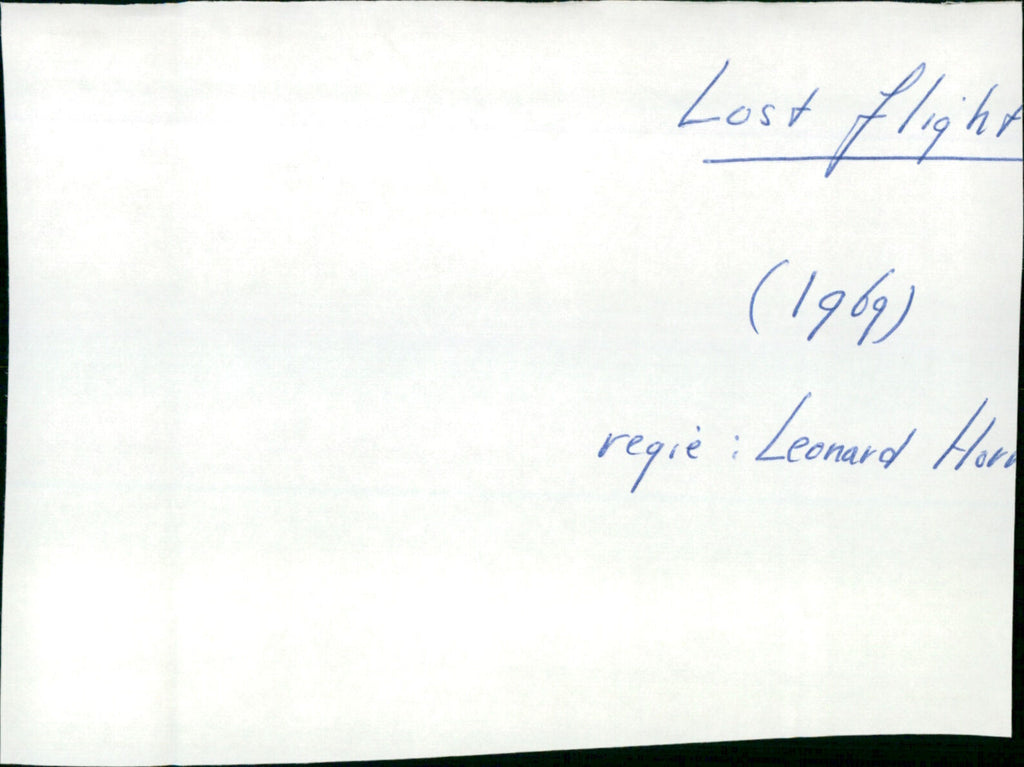 Lost flight
(1969)
regie : Leonard Horn